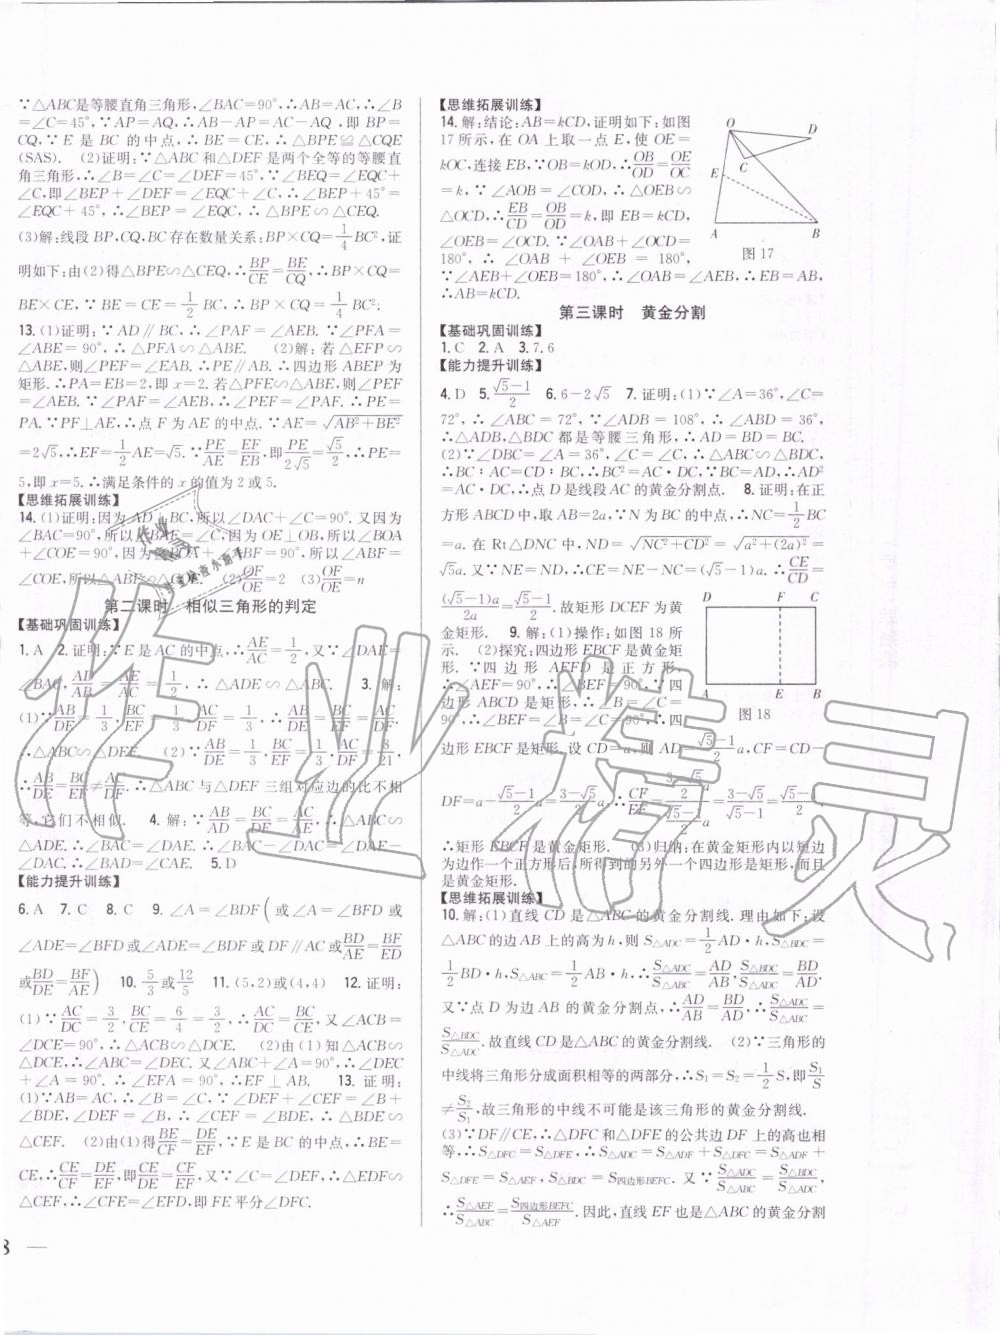 ∵△ABC是等腰直角三角形,∠BAC=90°,∴AB=AC,∴∠B
=∠C=45°,∵AP=AQ,∴AB-AP=AC-AQ,即BP=
CQ,∵E是BC的中点,∴BE=CE,∴△BPE≌△CQE
(SAS). (2)证明:∵△ABC和△DEF是两个全等的等腰直
角三角形,∴∠B=∠C=∠DEF=45°,∵∠BEQ=∠EQC+
∠C,即∠BEP+∠DEF=∠EQC+∠C,∴∠BEP+45°=
∠EQC+45°,∴∠BEP=∠EQC,∴△BPE∽△CEQ.
(3)解:线段BP,CQ,BC存在数量关系:BP×CQ=1/4BC²,证
明如下:由(2)得△BPE∽△CEQ,∴BP/CE=BE/CQ,∴BP×CQ=
BE×CE,∵BE=CE=1/2BC,∴BP×CQ=1/4BC².
13.(1)证明:∵AD∥BC,∴∠PAF=∠AEB.∵∠PFA=
∠ABE=90°,∴△PFA∽△ABE. (2)解:若△EFP∽
△ABE,则∠PEF=∠EAB.∴PE∥AB.∴四边形ABEP为
矩形.∴PA=EB=2,即x=2.若△PFE∽△ABE,则∠PEF
=∠AEB.∵∠PAF=∠AEB,∴∠PEF=∠PAF.∴PE=
PA.∵PF⊥AE,∴点F为AE的中点.∵AE=√(AB²+BE²)
=2√5,∴EF=1/2AE=√5.∵PE/AE=EF/EB,即PE/2√5=√5/2,∴PE=
5,即x=5.∴满足条件的x的值为2或5.
【思维拓展训练】
14.(1)证明:因为AD⊥BC,所以∠DAC+∠C=90°.又因为
∠BAC=90°,所以∠BAE=∠C,因为OE⊥OB,所以∠BOA
+∠COE=90°,因为∠BOA+∠ABF=90°,所以∠ABF=
∠COE,所以△ABF∽△COE. (2)OF/OE=2 (3)OF/OE=n
第二课时 相似三角形的判定
【基础巩固训练】
1.A 2.证明:∵E是AC的中点,∴AE/AC=1/2,又∵∠DAE=
∠BAC,AD/AB=AE/AC=1/2,∴△ADE∽△ABC. 3.解:
(1)∵AB/DE=1/3,BC/EF=1/3,AC/DF=1/3,∴AB/DE=BC/EF=AC/DF,
∴△ABC∽△DEF. (2)∵AB/DE=1/3,BC/EF=1/3,AC/DF=8/21,
∴AB/DE=BC/EF≠AC/DF,∴△ABC与△DEF三组对应边的比不相
等,它们不相似. 4.解:∵AB/AD=BC/DE=AC/AE,∴△ABC∽
△ADE.∴∠BAC=∠DAE.∴∠BAC-∠DAC=∠DAE-
∠DAC.∴∠BAD=∠CAE. 5.D
【能力提升训练】
6.A 7.C 8.C 9.∠A=∠BDF(或∠A=∠BFD或
∠ADE=∠BFD或∠ADE=∠BDF或DF∥AC或BD/AE=BF/ED
或BD/DE=BF/AE) 10.5/3或12/5 11.(5,2)或(4,4) 12.证明:
(1)∵AC/DC=3/2,BC/CE=6/4=3/2,∴AC/DC=BC/CE,又∠ACB=
∠DCE=90°,∴△ACB∽△DCE. (2)由(1)知△ACB∽
△DCE,∴∠ABC=∠DEC.又∠ABC+∠A=90°,∴∠DEC
+∠A=90°.∴∠EFA=90°.∴EF⊥AB. 13.证明:
(1)∵AB=AC,∴∠B=∠C,∵∠DEF+∠CEF=∠B+
∠BDE,∠DEF=∠B,∴∠CEF=∠BDE,∴△BDE∽
△CEF. (2)由(1)得BE/CF=DE/EF,∵E是BC的中点,∴BE=
CE,∴CE/CF=DE/EF,即CE/DE=CF/EF,又∵∠C=∠DEF,∴△EDF∽
△CEF,∴∠CFE=∠EFD,即FE平分∠DFC.
【思维拓展训练】
14.解:结论:AB=kCD,证明如下:如图
17所示,在OA上取一点E,使OE=
kOC,连接EB,∵OB=kOD,∴OB/OD=OE/OC
=k,∵∠AOB=∠COD,∴△OEB∽
△OCD,∴EB/CD=OB/OD=k,即EB=kCD,
∠OEB=∠OCD.∵∠OAB+∠OCD=
180°,∴∠OAB+∠OEB=180°,
∵∠AEB+∠OEB=180°,∴∠OAB=∠AEB,∴EB=AB,
∴AB=kCD.
O
D
C
E
A
B
图17
第三课时 黄金分割
【基础巩固训练】
1.C 2.A 3.7.6
【能力提升训练】
4.D 5.(√5-1)/2 6.6-2√5 7.证明:(1)∵∠A=36°,∠C=
72°,∴∠ABC=72°,∵∠ADB=108°,∴∠ABD=36°,
∴△ADB,△BDC都是等腰三角形,∴AD=BD=BC.
(2)∵∠DBC=∠A=36°,∠C=∠C,∴△ABC∽△BDC,
∴BC∶AC=CD∶BC,∴BC²=AC·DC,∵BC=AD,∴AD²
=AC·DC,∴点D是线段AC的黄金分割点. 8.证明:在正
方形ABCD中,取AB=2a,∵N为BC的中点,∴NC=1/2BC
=a.在Rt△DNC中,ND=√(NC²+CD²)=√(a²+(2a)²)=
√5a.又∵NE=ND,∴CE=NE-NC=(√5-1)a.∴CE/CD=
(√5-1)a/2a=(√5-1)/2.故矩形DCEF为黄
金矩形. 9.解:(1)操作:如图18所
示. (2)探究:四边形EBCF是黄金矩
形.∵四边形AEFD是正方形,
∴∠AEF=90°,∴∠BEF=90°,∵四
边形ABCD是矩形,∴∠B=∠C=
90°,∴∠BEF=∠B=∠C=90°,∴四
边形EBCF是矩形.设CD=a,则AD=(√5-1)/2a,CF=CD-
DF=a-(√5-1)/2a=(3-√5)/2a.∴CF/EF=((3-√5)/2a)/((√5-1)/2a)=(3-√5)/(√5-1)=(√5-1)/2,
∴矩形EBCF是黄金矩形. (3)归纳:在黄金矩形内以短边
为边作一个正方形后,所得到的另外一个四边形是矩形,而且
是黄金矩形.
D
F
C
A
E
B
图18
【思维拓展训练】
10.解:(1)直线CD是△ABC的黄金分割线.理由如下:设
△ABC的边AB上的高为h,则S△ADC=1/2AD·h,S△BDC=
1/2BD·h,S△ABC=1/2AB·h,∴S△ADC/S△ABC=AD/AB,S△BDC/S△ADC=BD/AD.
又∵点D为边AB的黄金分割点,∴AD/AB=BD/AD,∴S△ADC/S△ABC=
S△BDC/S△ADC.故直线CD是△ABC的黄金分割线. (2)∵三角形的
中线将三角形分成面积相等的两部分,∴S₁=S₂=1/2S,即S₁/S
≠S₂/S₁,故三角形的中线不可能是该三角形的黄金分割线.
(3)∵DF∥CE,∴△DFC和△DFE的公共边DF上的高也相
等,∴S△DFC=S△DFE,∴S△ADC=S△ADF+S△DFC=S△ADF+
S△DFE=S△AEF,S△BDC=S四边形BEFC. 又∵S△ADC/S△ABC=S△BDC/S△ADC,
∴S△AEF/S△ABC=S四边形BEFC/S△AEF.因此,直线EF也是△ABC的黄金分割
8 —
作业精灵